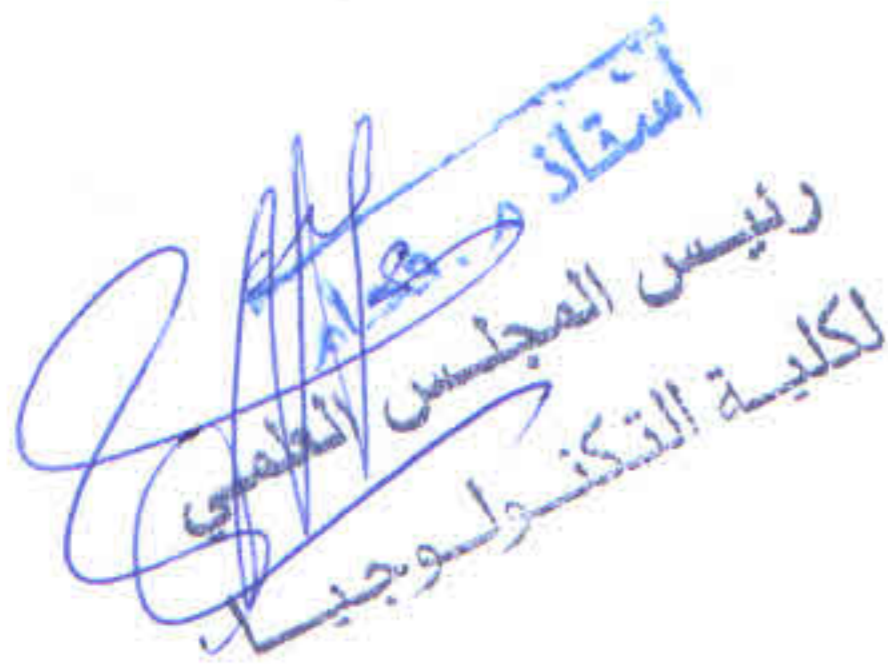 أستاذ
رئيس المجلس العلمي
لكليــة التكنــولــوجيــا